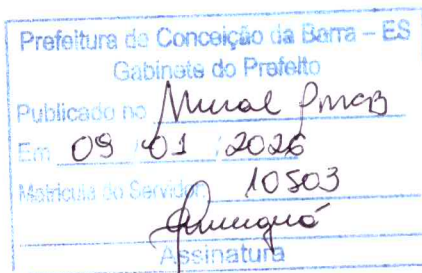 Prefeitura de Conceição da Barra – ES
Gabinete do Prefeito
Publicado no Mural PMCB
Em 09 / 01 / 2026
Matrícula do Servidor: 10503
Assinatura